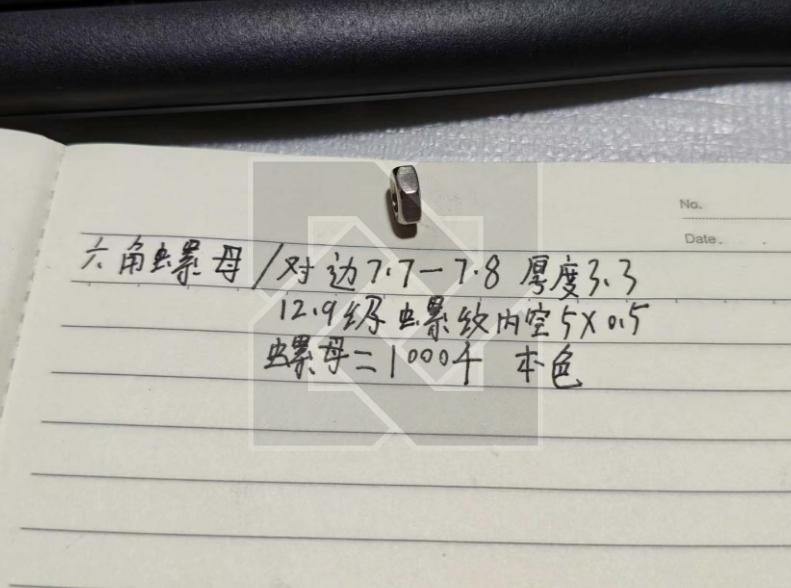 No.
Date.
六角螺母/对边7.7-7.8 厚度3.3
12.9级螺纹内空5X0.5
螺母=1000千 本色